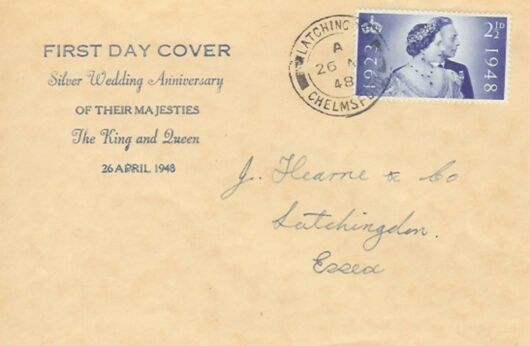 FIRST DAY COVER
Silver Wedding Anniversary
OF THEIR MAJESTIES
The King and Queen
26 APRIL 1948
LATCHING
A
26
48
CHELMSF
1923
2½D
1948
J. Hearne & Co
Latchingdon.
Essex